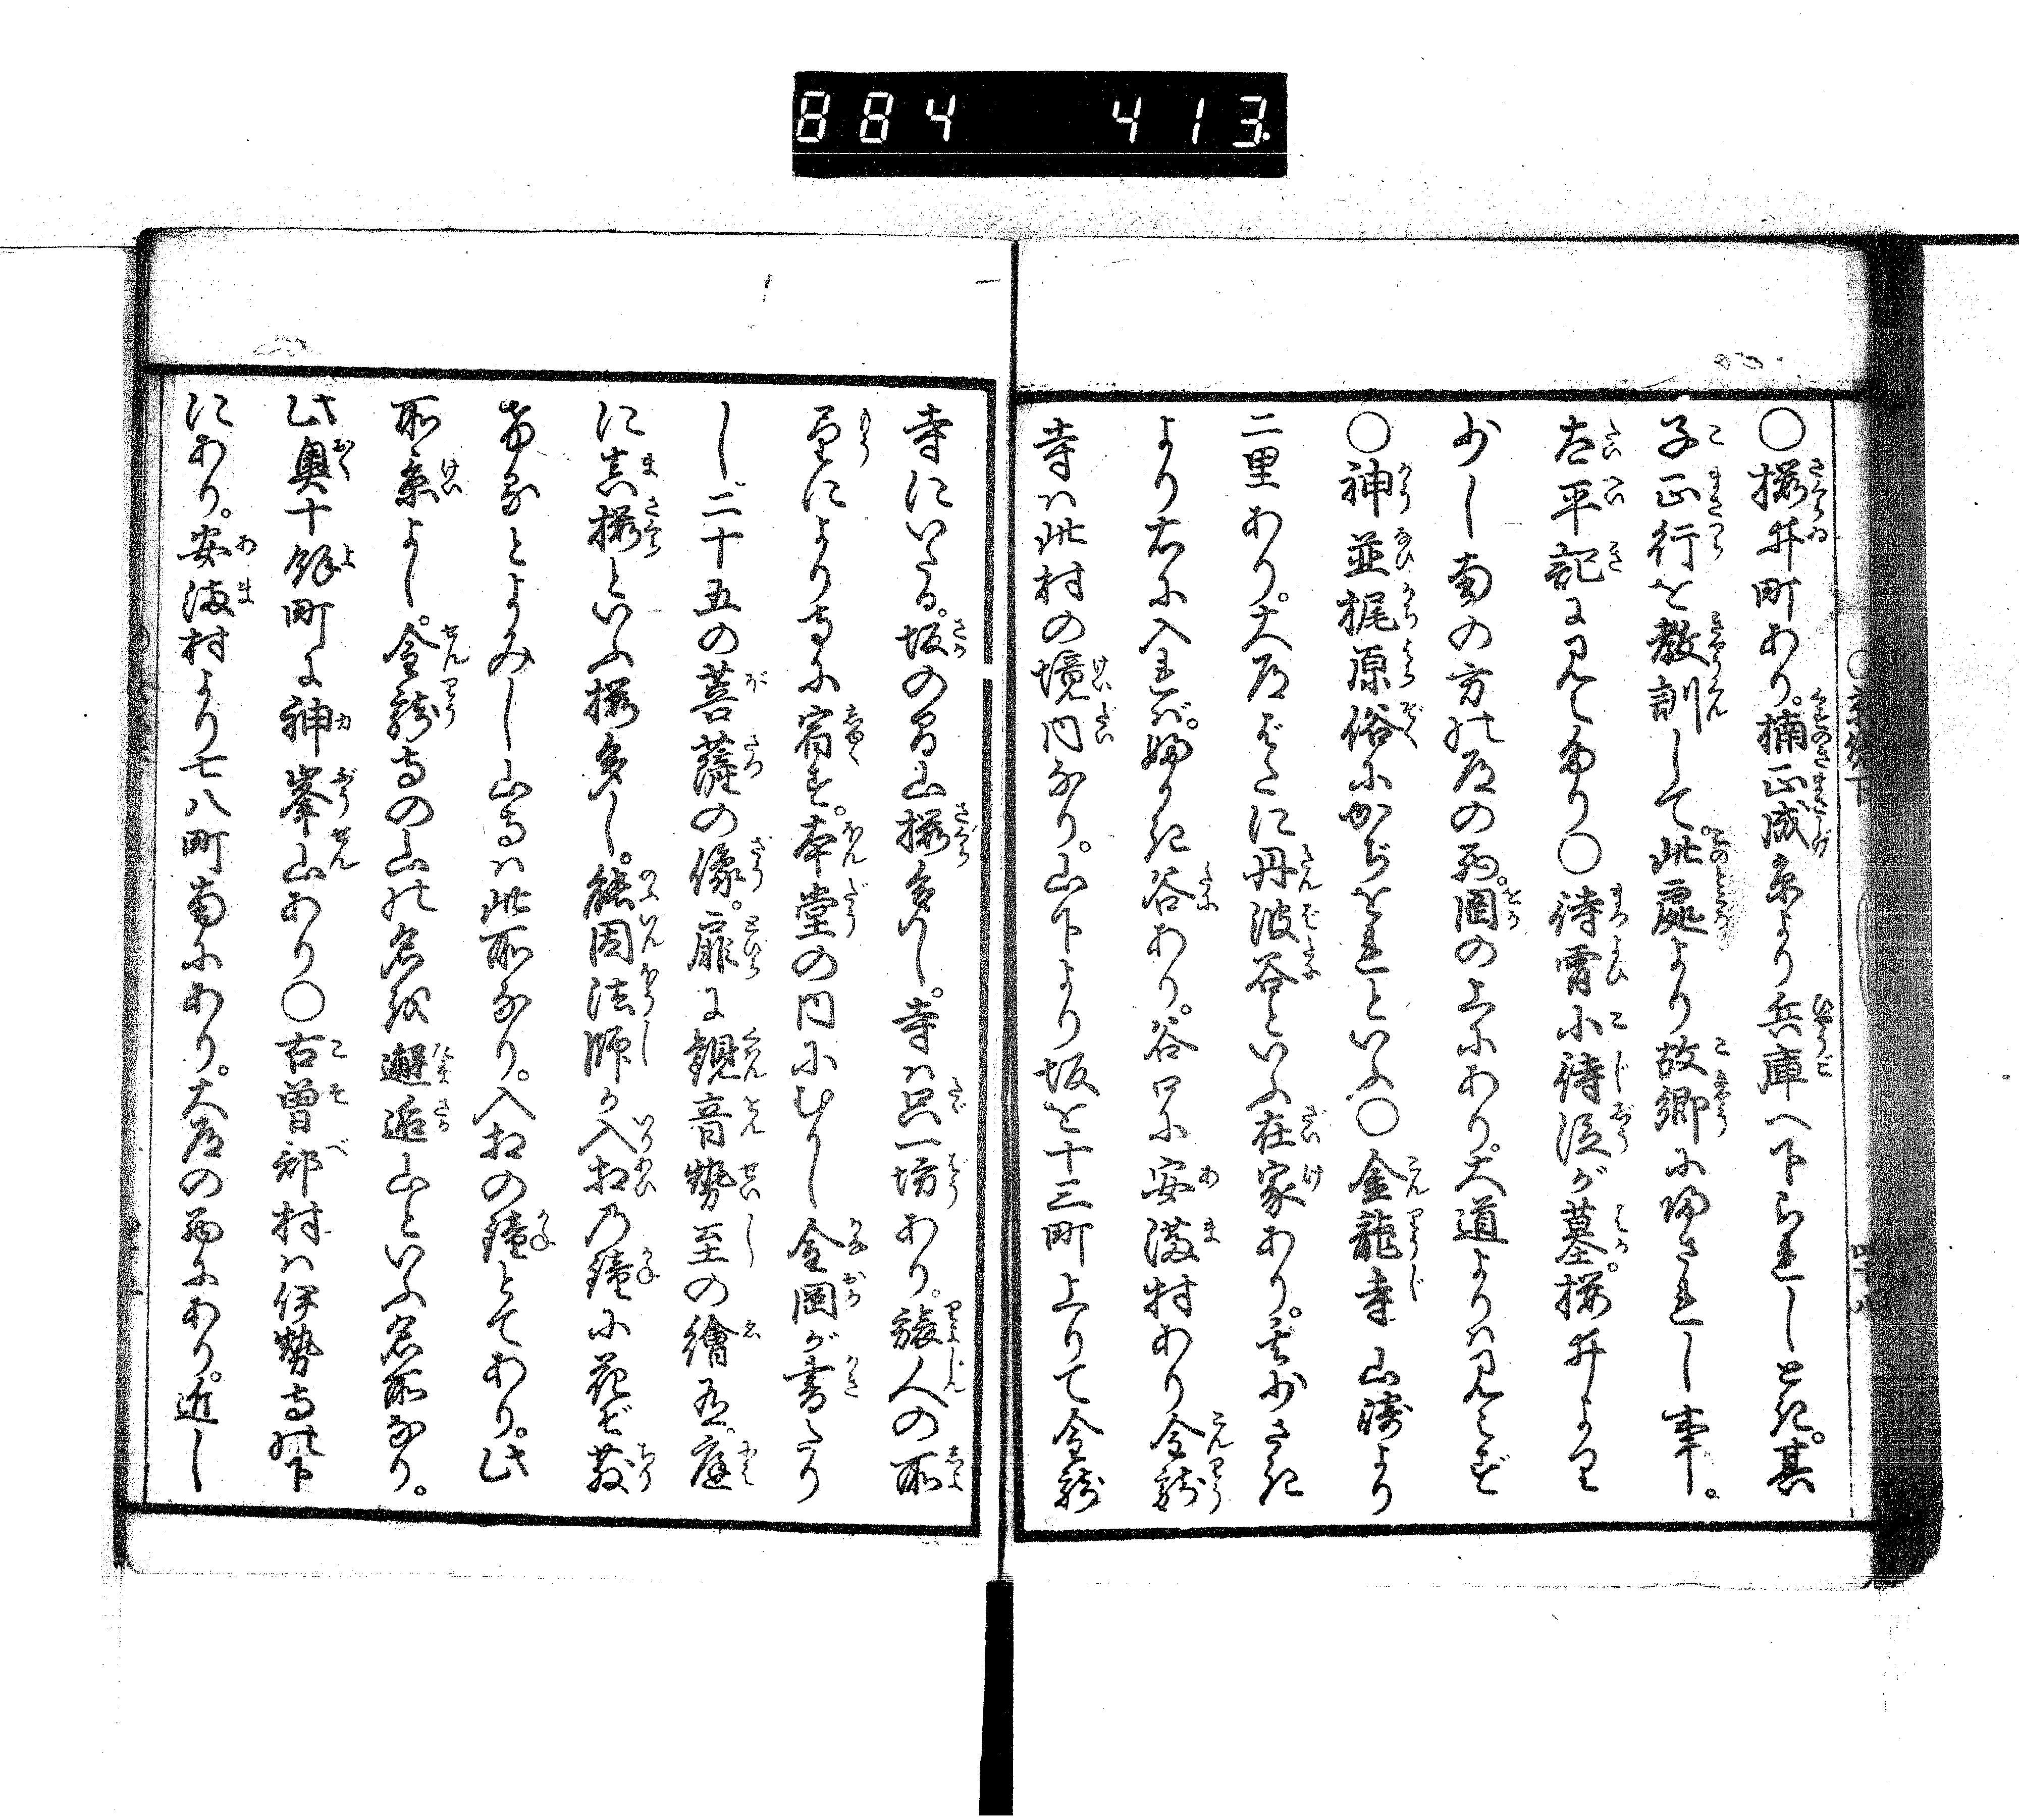 884 413
○桜井町あり。楠正成京より兵庫へ下られしとき。其
子正行を教訓して。此處より故郷に帰されし事。
太平記に見えたり○待宵小侍従が墓。桜井より
少し南の方北道の西。岡の上にあり。大道よりは見えず
○神並梶原俗にかぢをれといふ○金龍寺山崎より
二里あり。大道ばたに丹波谷といふ在家あり。其少さき
より右に入れば。婦かき谷あり。谷口に安満村あり金龍
寺は此村の境内なり。山下より坂を十三町上りて金龍
寺にいたる。坂の間山桜多し。寺は只一坊あり。旅人の所
望により寺に宿す。本堂の内にむかし金岡が書たり
し二十五の菩薩の像。扉に観音勢至の繪有。庭
に真桜といふ桜多し。能因法師が入相乃鐘に花ぞ散
けるとよみし山寺は此所なり。入相の鐘とてあり。此
所景よし。金龍寺の山北名を邂逅山といふ名所なり。
此奥十餘町に神峯山あり○古曽部村は伊勢寺北下
にあり。安満村より七八町南にあり。大道の西にあり。近し